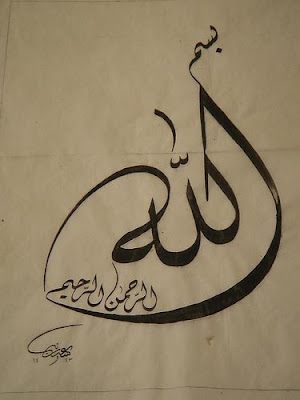 بسم
الله
الرَّحمن الرَّحيم